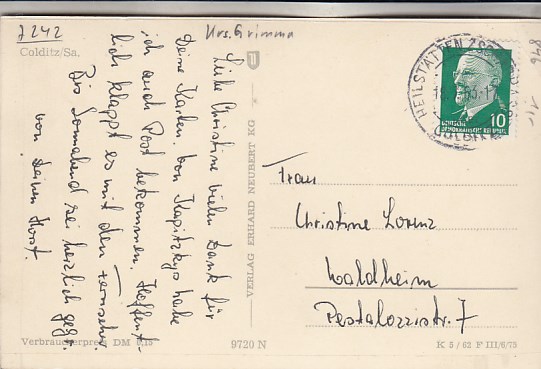 7242
Krs. Grimma
Colditz/Sa.
Liebe Christine vielen Dank für
Deine Karten. Von Kapitzkys habe
ich auch Post bekommen. Hoffent-
lich klappt es mit dem Fernseher.
Bis Sonnabend sei herzlich gegr.
von Deinen Horst.
VERLAG ERHARD NEUBERT KG
HEILSTÄTTEN
COLDITZ
10
DEUTSCHE
DEMOKRATISCHE REPUBLIK
Frau
Christine Lorenz
Waldheim
Pestalozzistr. 7
Verbraucherpreis DM 0,15
9720 N
K 5/62 F III/6/73